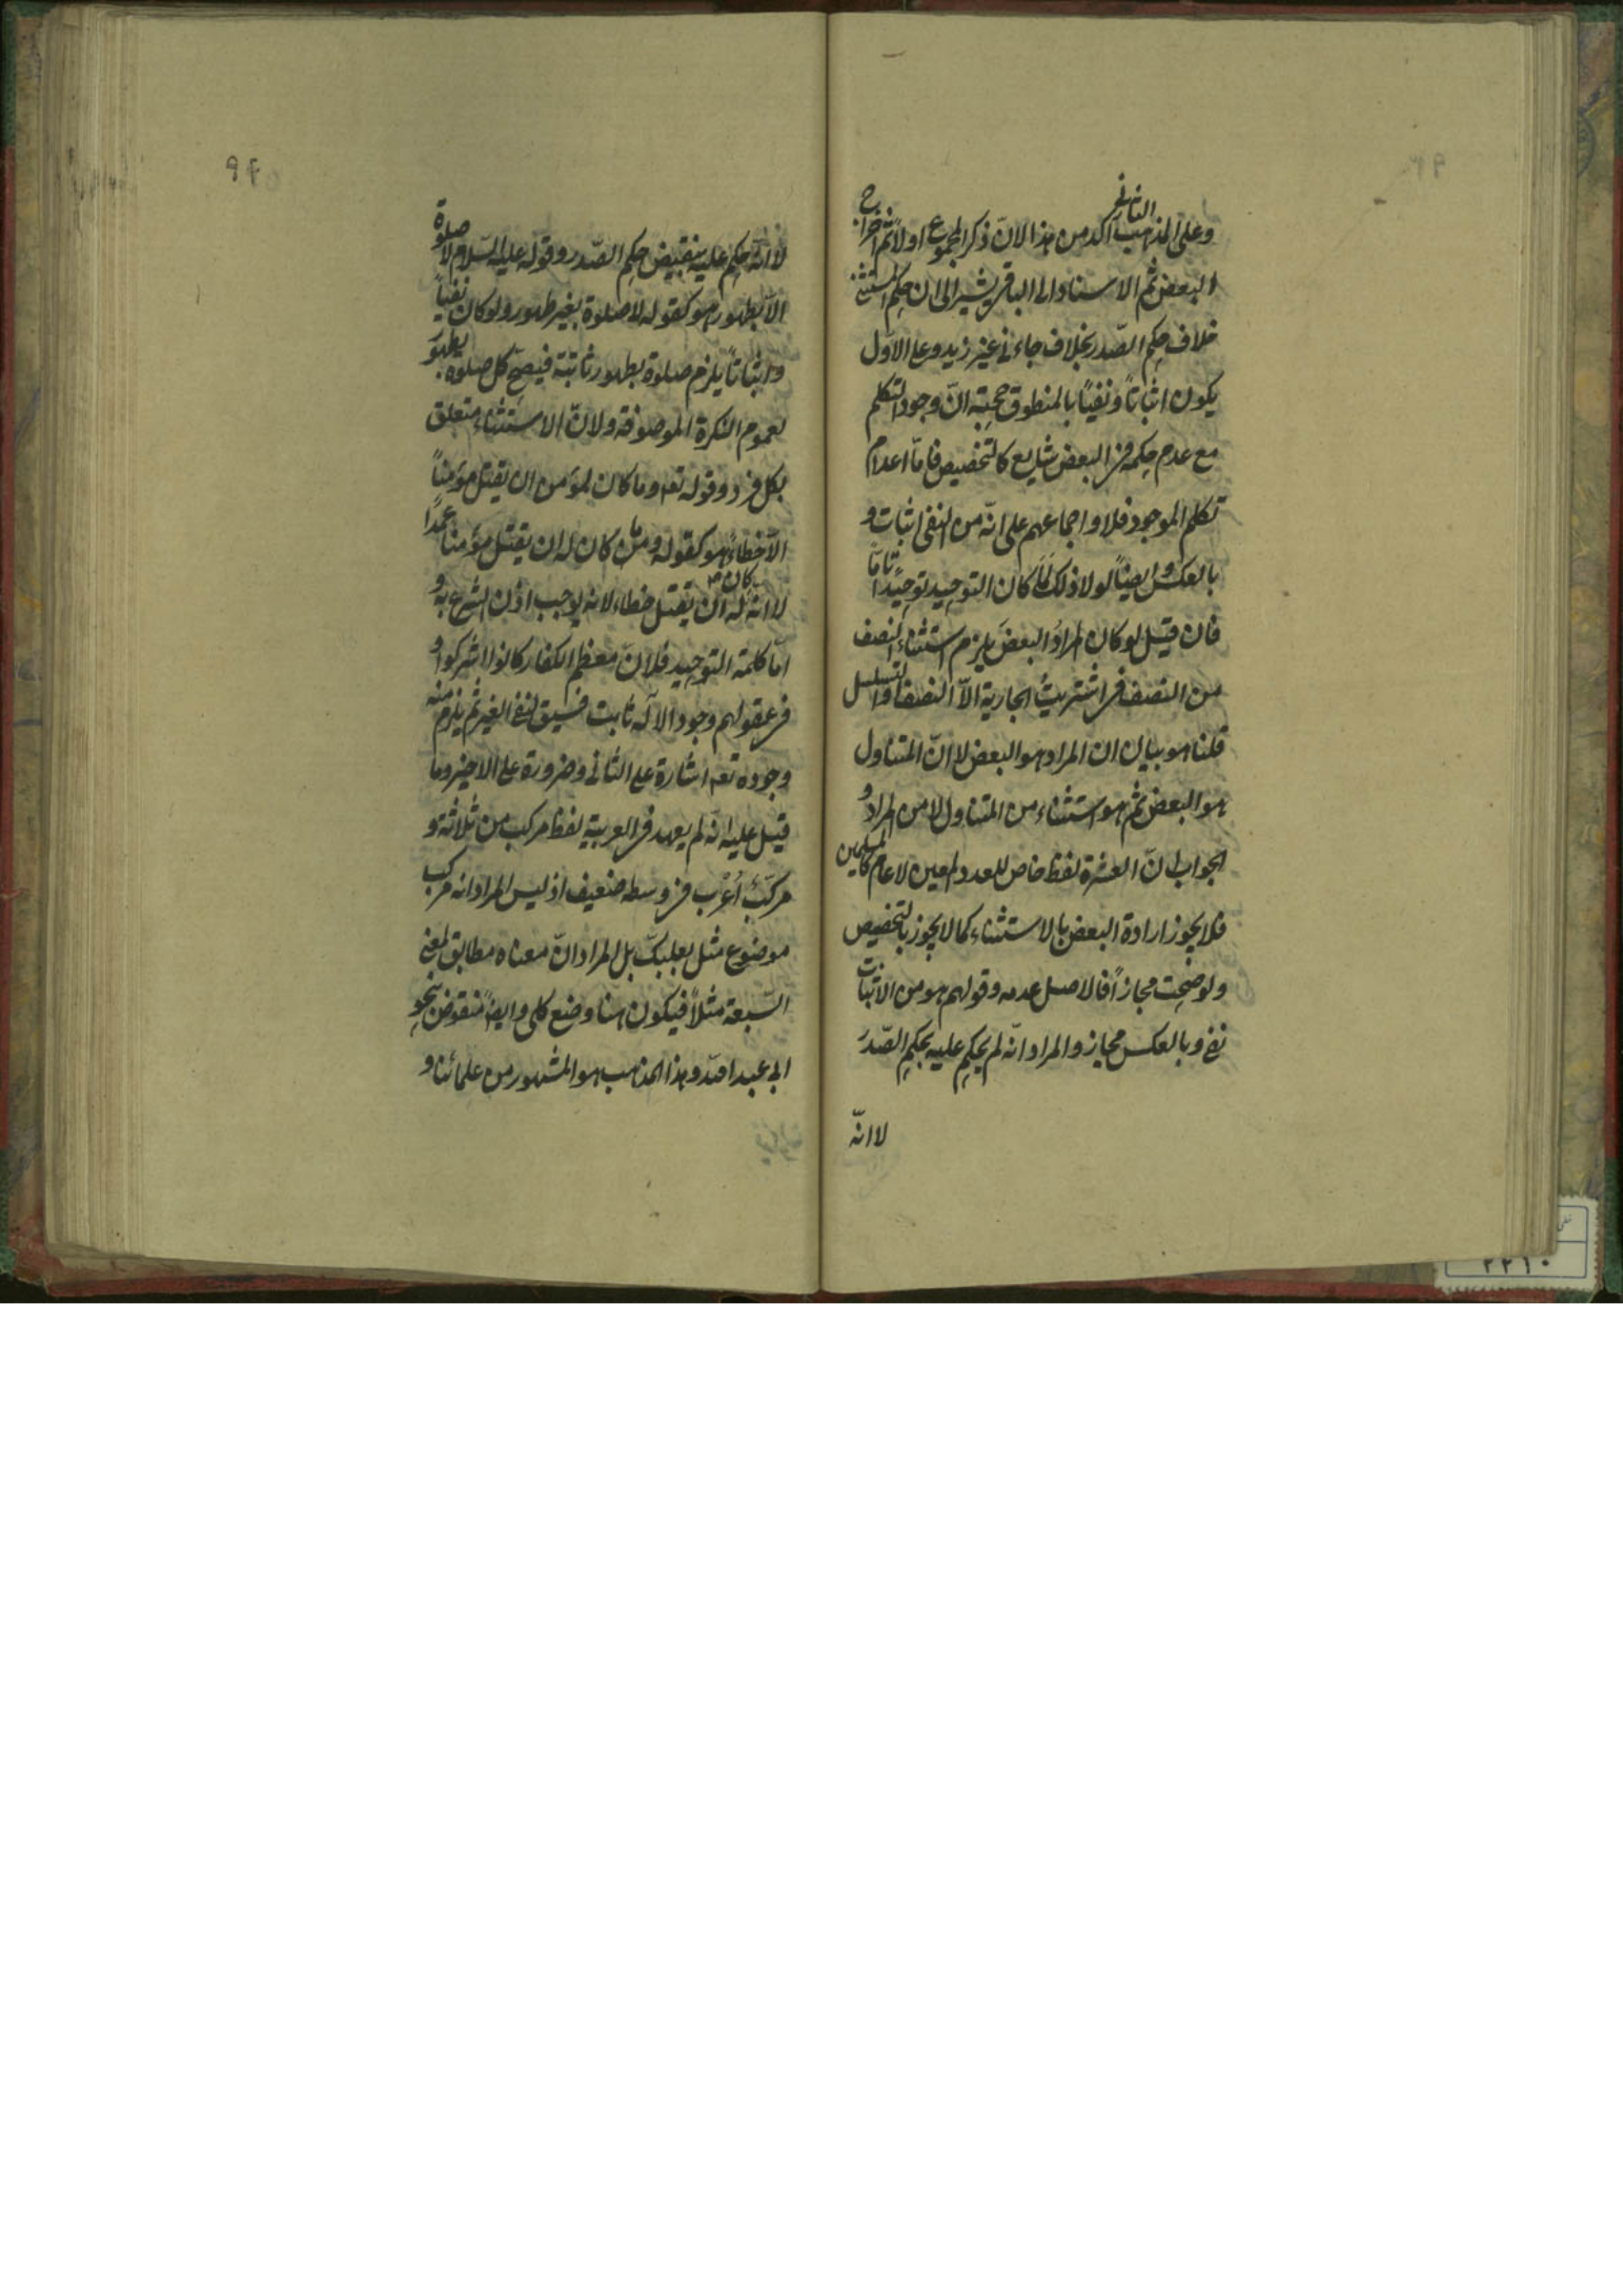 وعلى المذهب الثانى آكد من هذا لانّ ذكر المجموع اولاً ثم اخراج
البعض ثم الاسناد الى الباقى يشير الى ان حكم المستثنى
خلاف حكم الصّدر بخلاف جاءنى غير زيد وعلى الاوّل
يكون اثباتاً ونفيًا بالمنطوق حجيته انّ وجود التكلم
مع عدم حكمه فى البعض شايع كالتخصيص فامّا اعدام
تكلم الموجود فلا واجماعهم على انّه من النفى اثبات و
بالعكس وايضاً لولا ذلك لما كان التوحيد توحيدًا تامّاً
فان قيل لو كان المراد البعض يلزم استثناء النصف
من النصف فى اشتريتُ الجارية الاّ النصف او التسلسل
قلنا هو بيان ان المراد هو البعض لا انّ المتناول
هو البعض ثم هو استثناء من المتناول لا من المراد و
الجواب انّ العشرة لفظ خاص للعدد المعين لا عام كالمسلمين
فلا يجوز ارادة البعض بالاستثناء كما لا يجوز بالتخصيص
ولو صحت مجازاً فالاصل عدمه وقولهم هو من الاثبات
نفى وبالعكس مجاز والمراد انّه لم يحكم عليه بحكم الصّدر
لا انّه
٩٤
لا انّه حكم عليه بنقيض حكم الصّدر وقوله عليه السّلام لا صلوة
الاّ بطهور هو كقوله لا صلوة بغير طهور ولو كان نفياً
واثباتاً يلزم صلوة بطهور ثابتة فيصحّ كل صلوة بطهور
لعموم النكرة الموصوفة ولانّ الاستثناء متعلق
بكل فرد وقوله تعه وما كان لمؤمن ان يقتل مؤمناً
الاّ خطاءً هو كقوله وما كان له ان يقتل مؤمنا عمدًا
لا انه كان له ان يقتل خطاء لانه يوجب اذن الشرع به و
امّا كلمة التوحيد فلانّ معظم الكفار كانوا اشركوا و
فى عقولهم وجود الاله ثابت فسيق لنفى الغير ثم يلزم منه
وجوده تعه اشارة على الثانى وضرورة على الاخير وما
قيل عليه انّه لم يعهد فى العربية لفظ مركب من ثلاثة و
مركّبٌ أعرب فى وسطه ضعيف اذ ليس المراد انه مركب
موضوع مثل بعلبكّ بل المراد انّ معناه مطابق لمعنى
السّبعة مثلاً فيكون هنا وضع كلى وايضاً منقوض بنحو
ابى عبد الله وهذا المذهب هو المشهور من علمائنا و